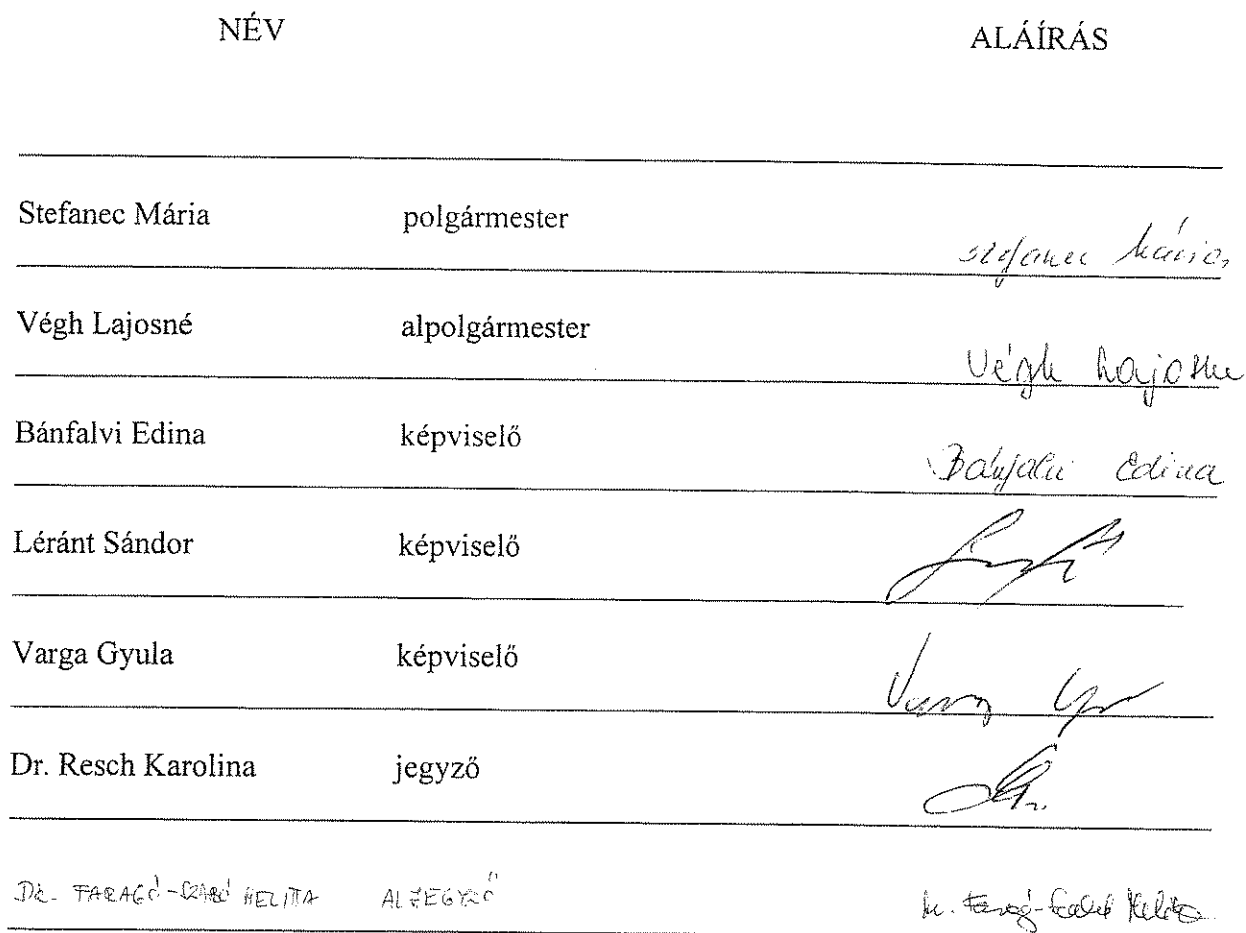 NÉV ALÁÍRÁS
Stefanec Mária polgármester Stefanec Mária
Végh Lajosné alpolgármester Végh Lajosné
Bánfalvi Edina képviselő Bánfalvi Edina
Léránt Sándor képviselő
Varga Gyula képviselő Varga
Dr. Resch Karolina jegyző
DR. FARAGÓ-SZABÓ MELITTA ALJEGYZŐ Dr. Faragó-Szabó Melitta